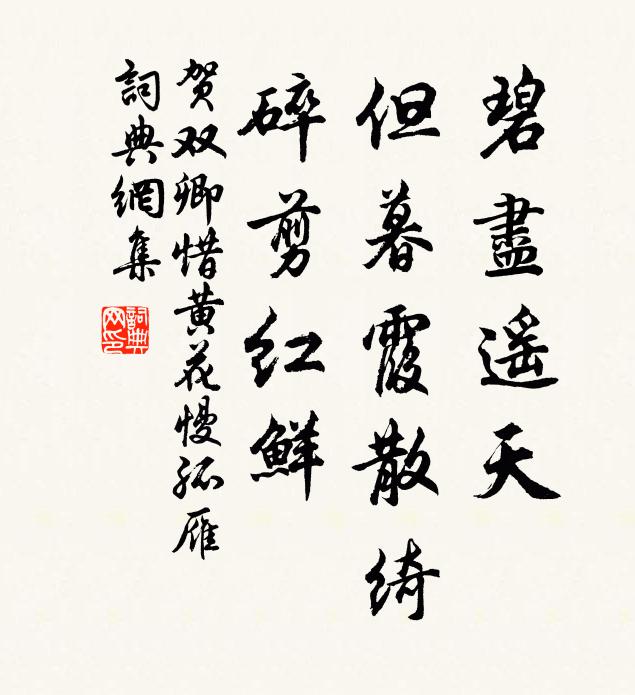 碧盡遥天
但暮霞散綺
碎剪红鮮
贺双卿惜黄花慢孤雁
詞典網集
詞典
网印